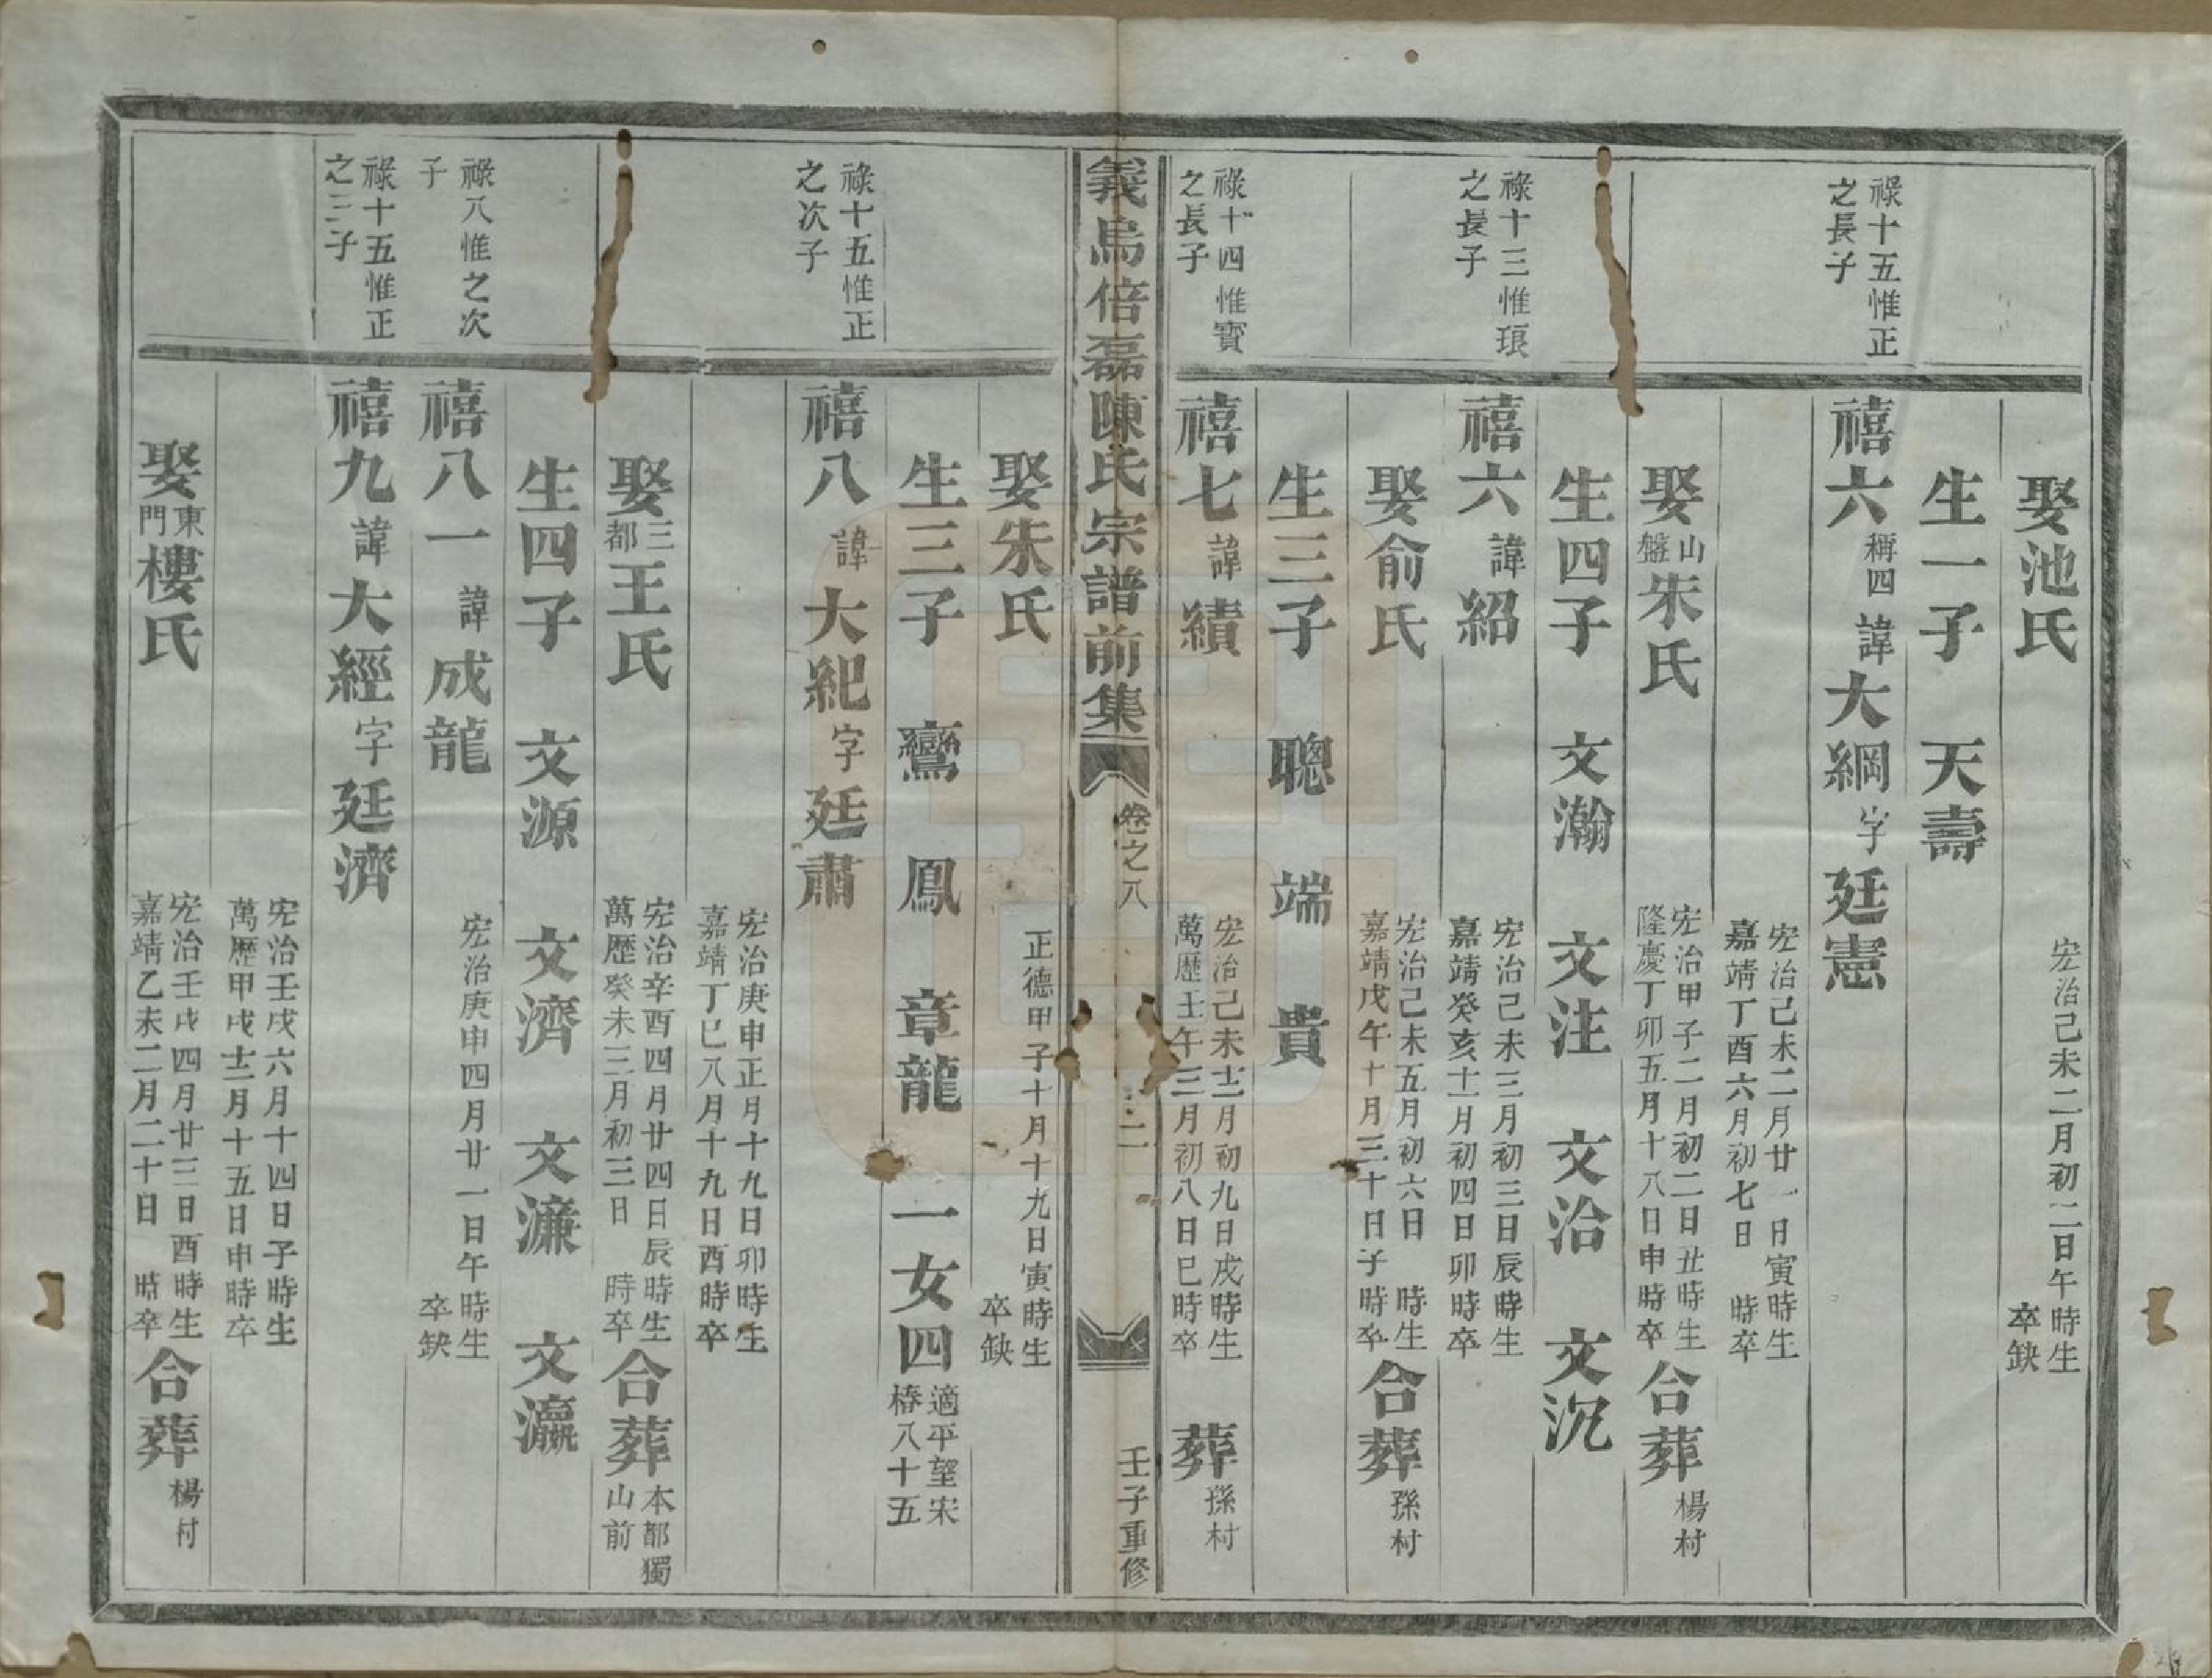 娶池氏 宏治己未二月初二日午時生 卒缺
生一子 天壽
祿十五惟正之長子
禧六 稱四 諱大綱 字廷憲
宏治己未二月廿一日寅時生 嘉靖丁酉六月初七日 時卒
娶山盤朱氏 宏治甲子二月初二日丑時生 隆慶丁卯五月十八日申時卒 合葬楊村
生四子 文瀚 文注 文治 文沉
祿十三惟琅之長子
禧六 諱紹 宏治己未三月初三日辰時生 嘉靖癸亥十一月初四日卯時卒
娶俞氏 宏治己未五月初六日 時生 嘉靖戊午十月三十日子時卒 合葬孫村
生三子 聰 端 貴
祿十四惟寶之長子
禧七 諱績 宏治己未十二月初九日戌時生 萬歷壬午三月初八日巳時卒 葬孫村
義烏倍磊陳氏宗譜前集 卷之八 二 壬子重修
娶朱氏 正德甲子十月十九日寅時生 卒缺
生三子 鸞 鳳 章龍 一女四 適平望宋椿八十五
祿十五惟正之次子
禧八 諱大紀 字廷肅
宏治庚申正月十九日卯時生 嘉靖丁巳八月十九日酉時卒
娶三都王氏 宏治辛酉四月廿四日辰時生 萬歷癸未三月初三日 時卒 合葬本都獨山前
生四子 文源 文濟 文濂 文瀛
祿八惟之次子
禧八一 諱成龍 宏治庚申四月廿一日午時生 卒缺
祿十五惟正之三子
禧九 諱大經 字廷濟
宏治壬戌六月十四日子時生 萬歷甲戌十二月十五日申時卒
娶東門樓氏 宏治壬戌四月廿三日酉時生 嘉靖乙未二月二十日 時卒 合葬楊村